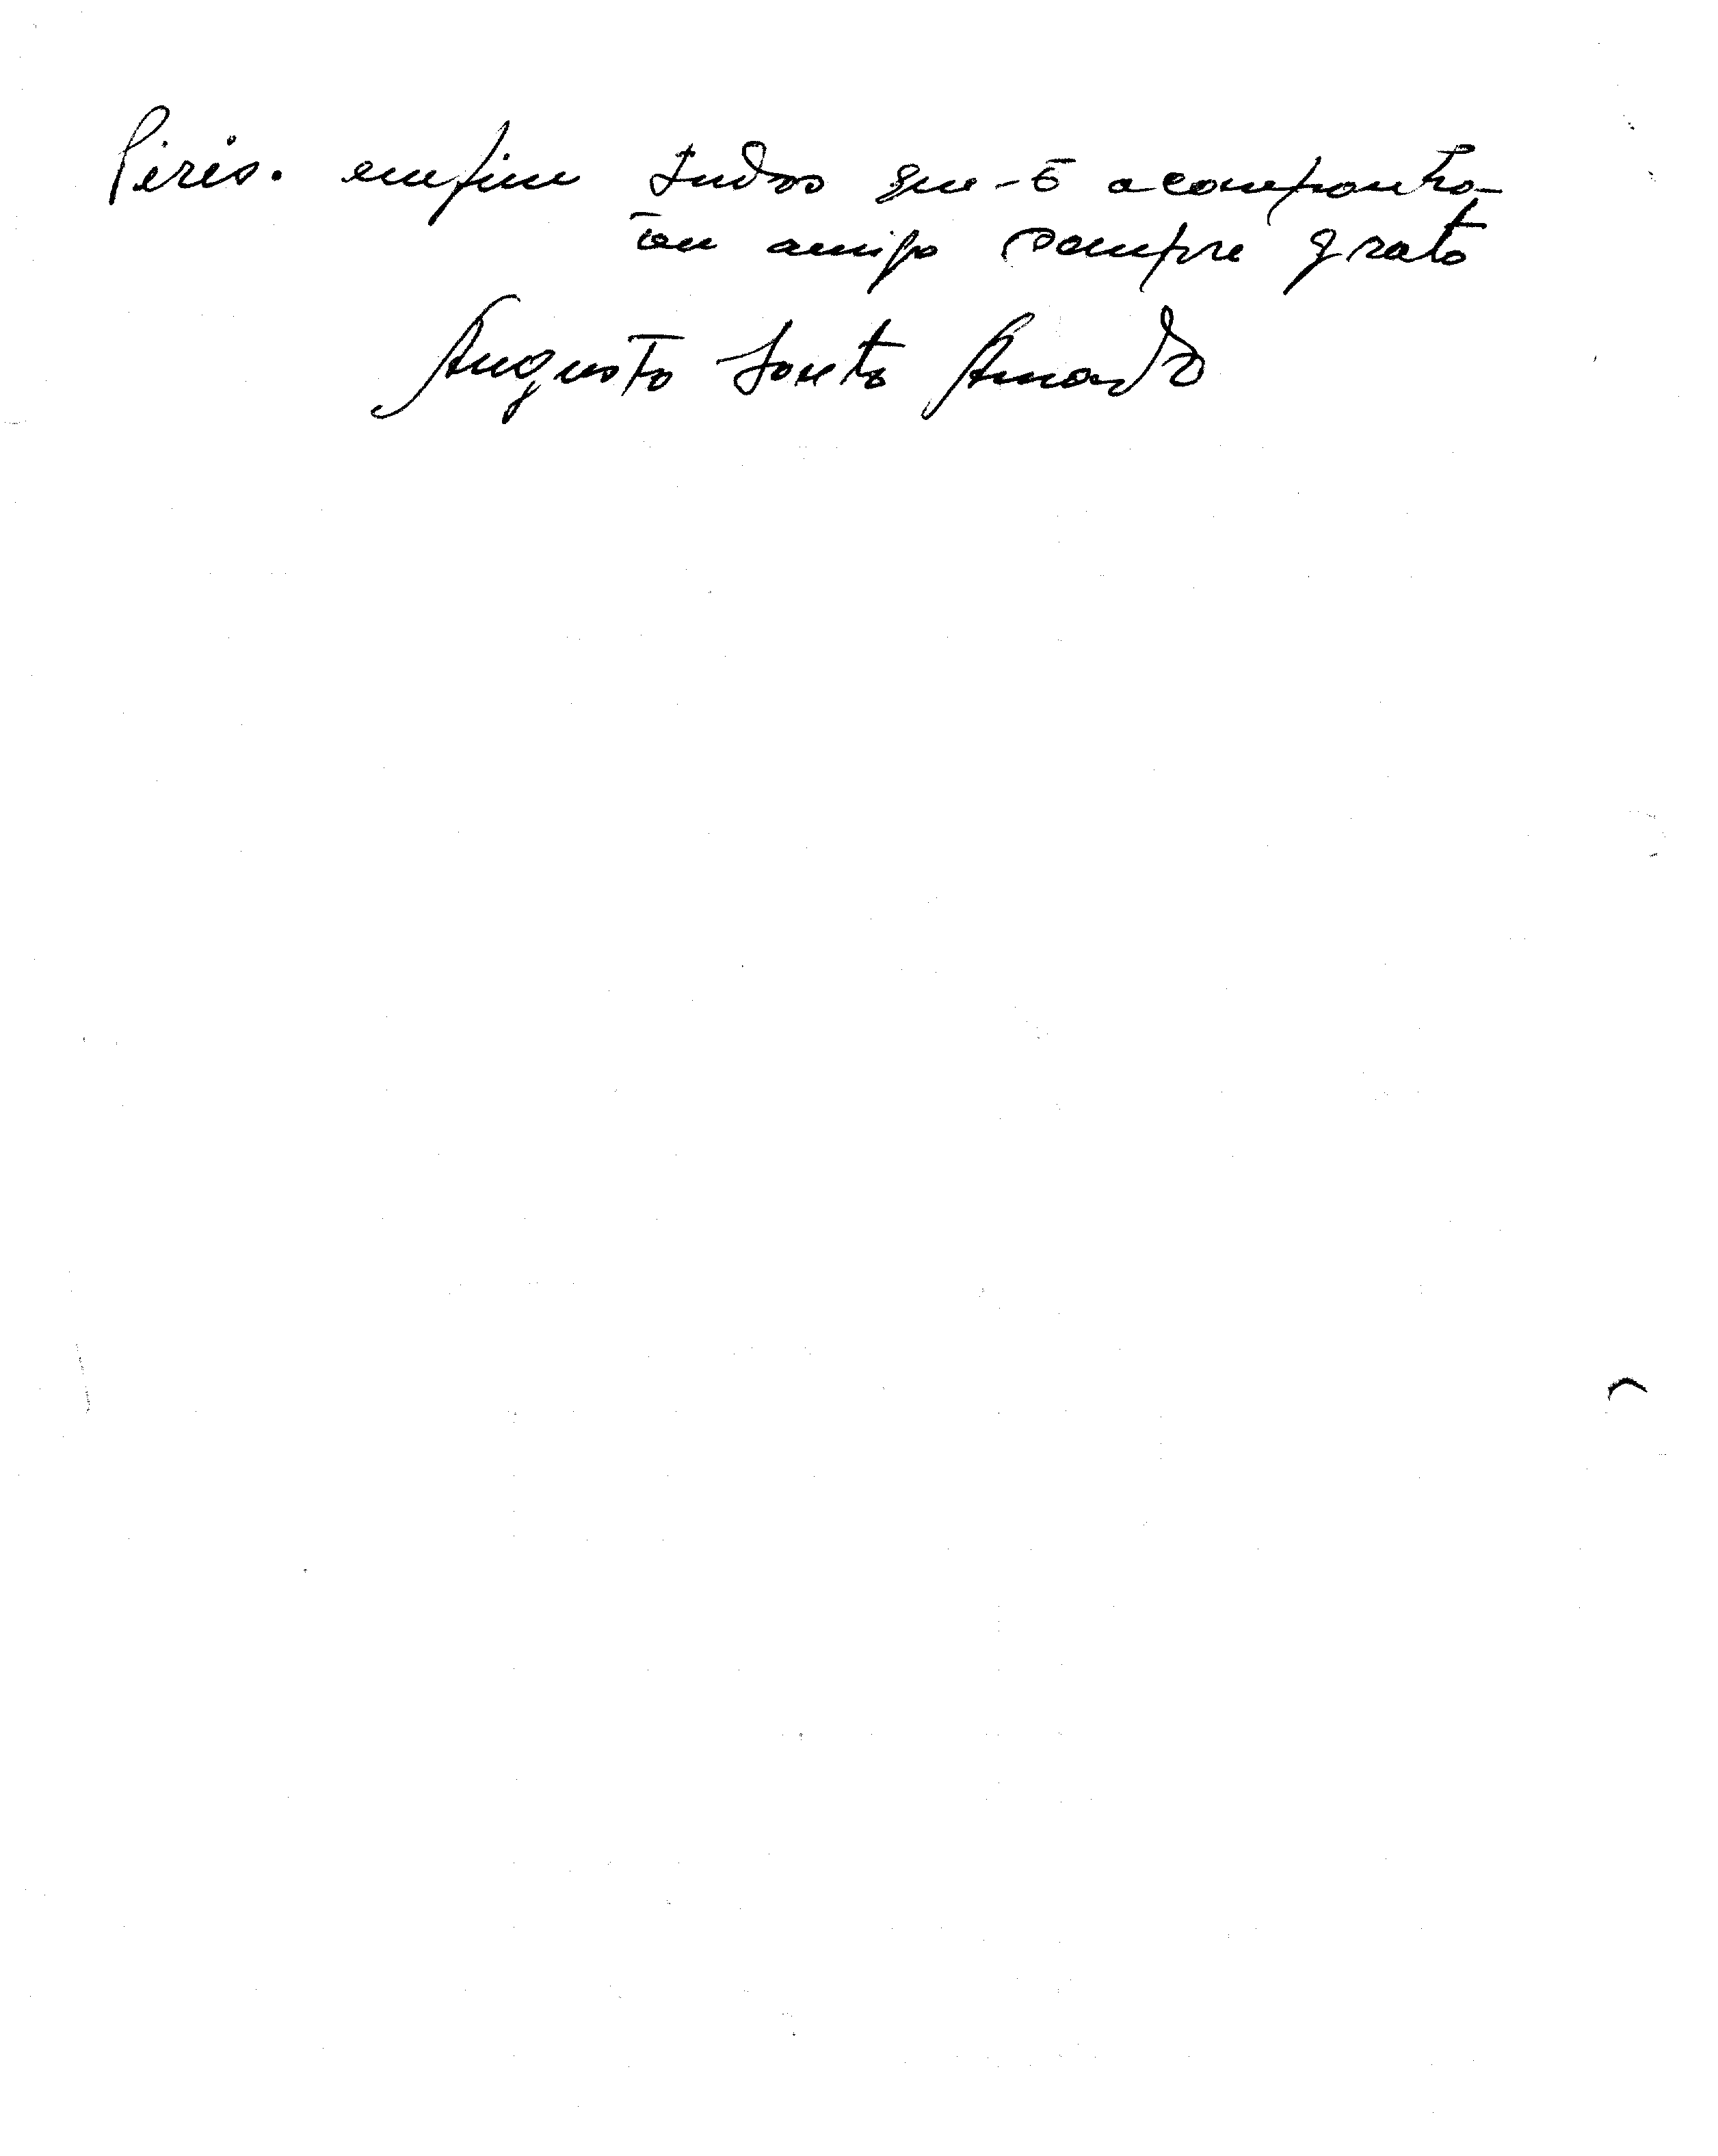 Pires. enfim todos que-o acompanha
um amigo sempre grato
Augusto Souto Amado